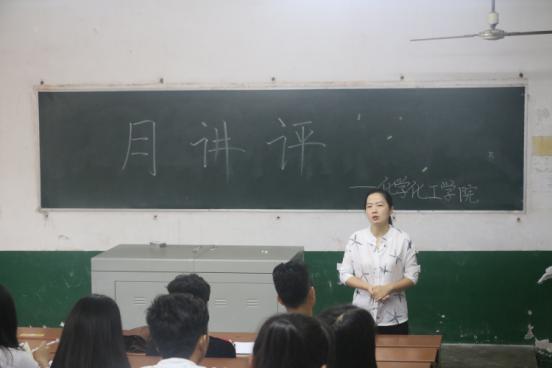 月讲评
—化学化工学院